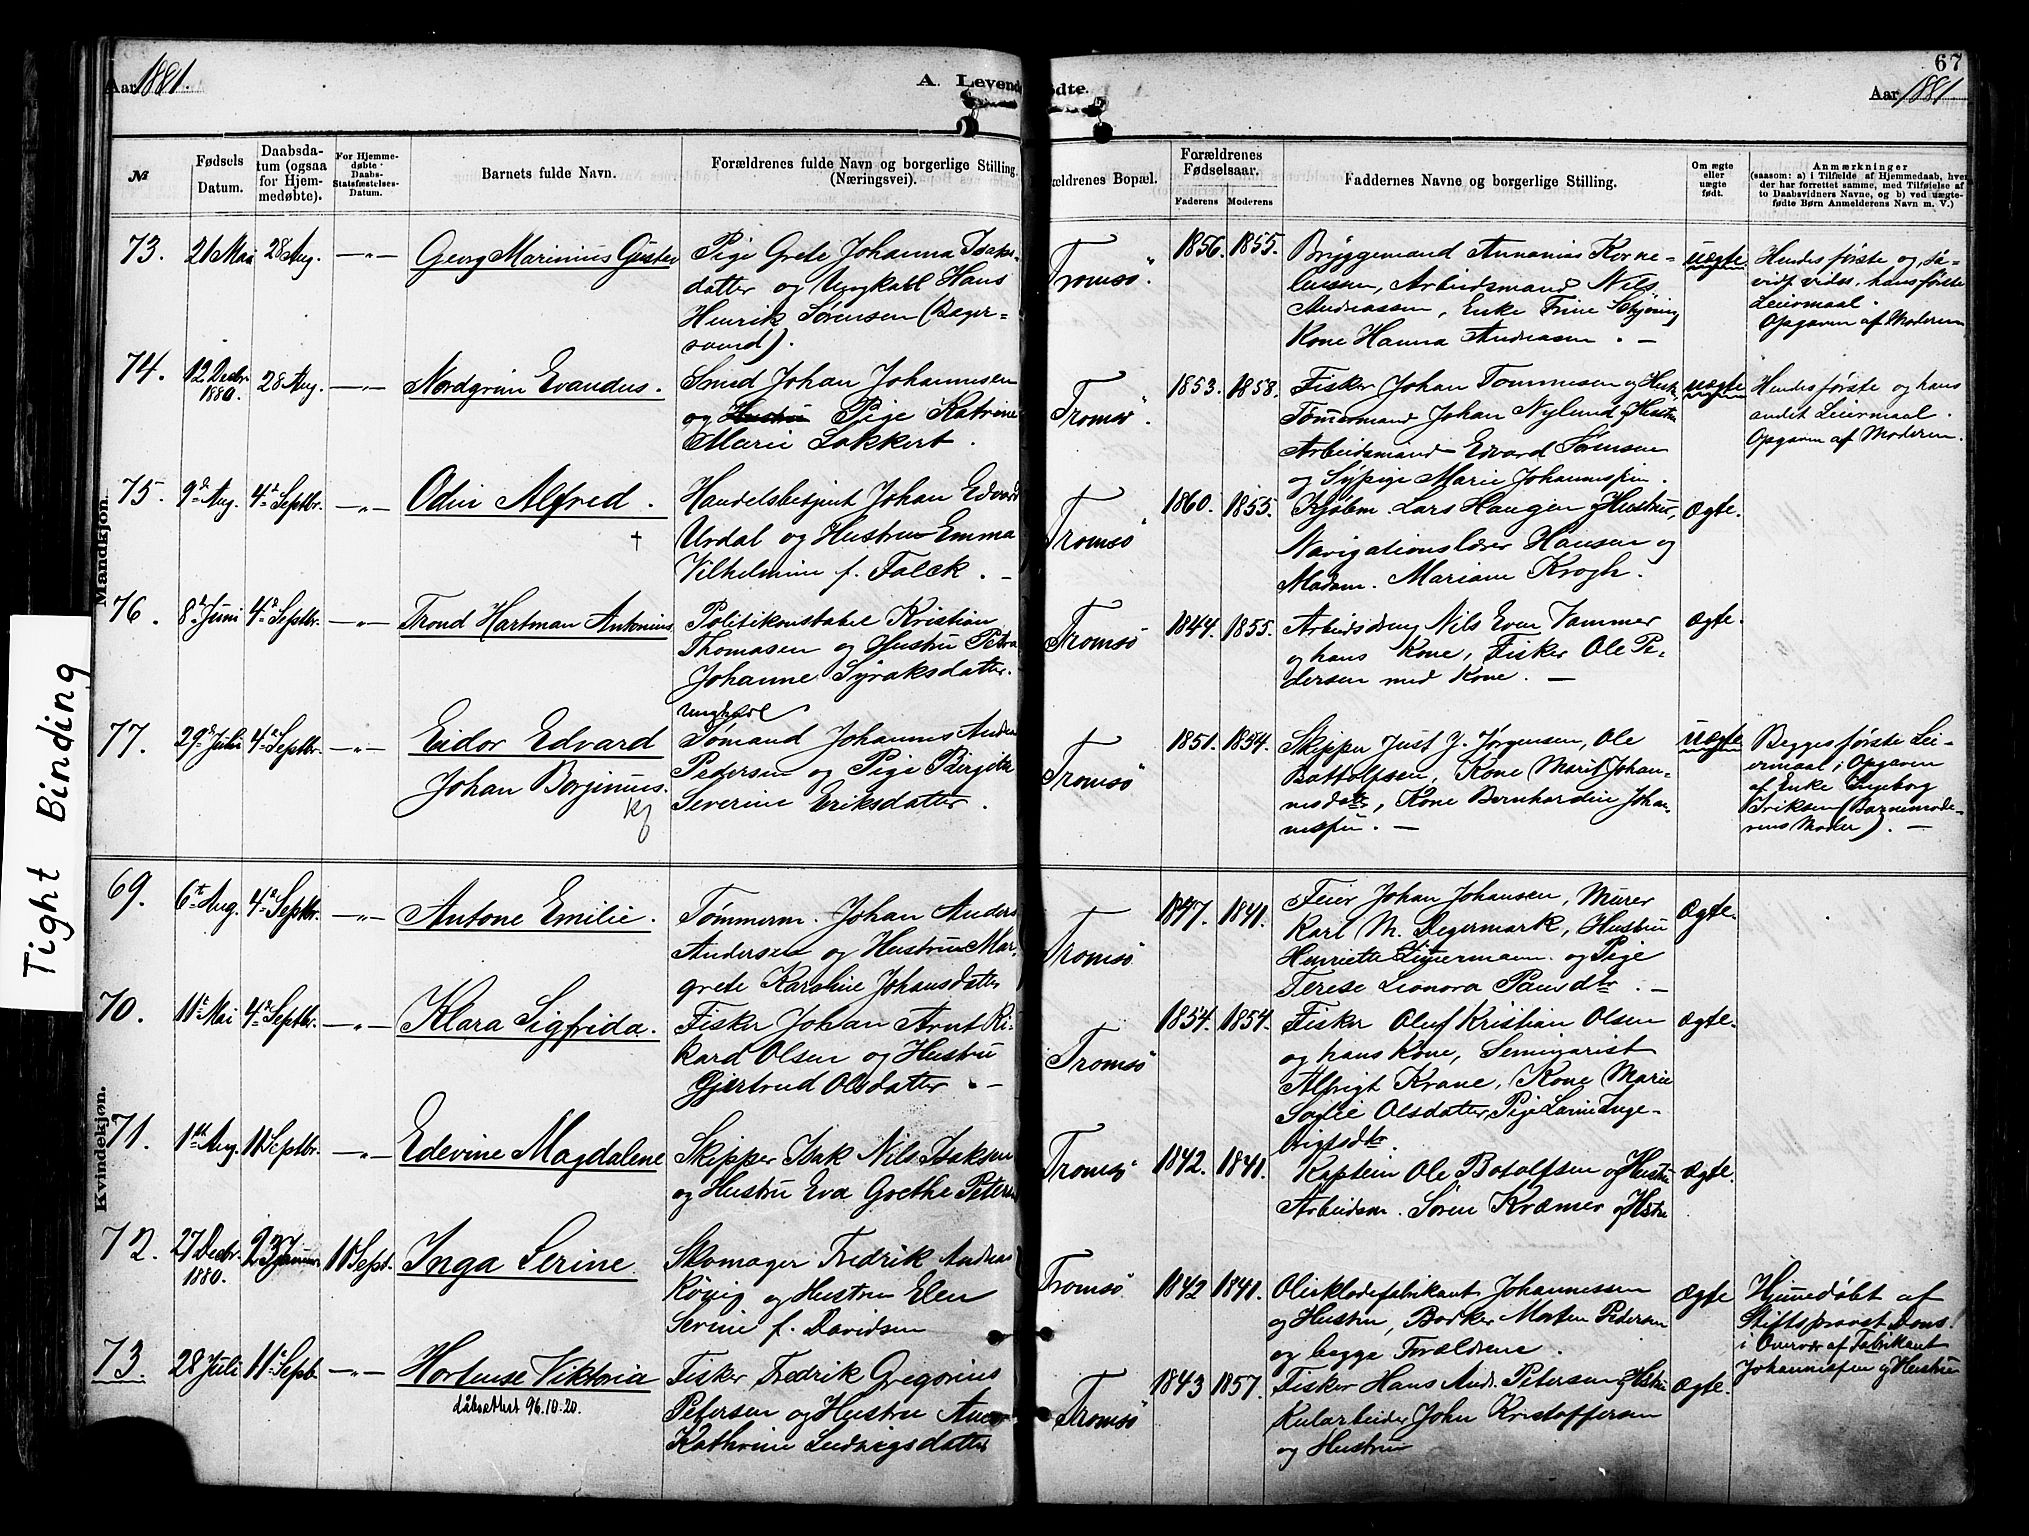 Aar 1881.
A. Levendefødte.
67
Aar 1881.
№
Fødsels Datum.
Daabsdatum (ogsaa for Hjemmedøbte).
For Hjemmedøbte Daabs-Statsfæstelses-Datum.
Barnets fulde Navn.
Forældrenes fulde Navn og borgerlige Stilling.
(Næringsvei).
Forældrenes Bopæl.
Forældrenes Fødselsaar.
Faderens
Moderens
Faddernes Navne og borgerlige Stilling.
Om ægte eller uægte født.
Anmærkninger
(saasom: a) i Tilfælde af Hjemmedaab, hvem
der har forrettet samme, med Tilføielse af
to Daabsvidners Navne, og b) ved uægte-
fødte Børn Anmelderens Navn m. V.)
Mandkjøn.
73. 21 Mai 28 Aug. —„— Georg Marinius Gustav
Pige Grete Johanna Isaks-
datter og Ungkarl Hans
Henrik Sørensen (Bager-
svend).
Tromsø 1856. 1855.
Bryggemand Annanias Korne-
liussen, Arbeidsmand Nils
Andreassen, Enke Trine Schjøning
Kone Hanna Andreasen. —
uægte.
Hendes første og, så-
vidt vides, hans første
Leiermaal.
Opgaven af Moderen
74. 12 Decbr. 1880. 28 Aug. —„— Nordgrim Evandus.
Smed Johan Johannesen
og Hustru Pige Katrine
Marie Lakkert.
Tromsø 1853. 1858.
Fisker Johan Tommesen og Hustr.
Tømermand Johan Nylund og Hustru
Arbeidsmand Edvard Sørensen
og Sypige Marie Johannesen.
uægte
Hendes første og hans
andet Leiermaal.
Opgaven af Moderen.
75. 9d Aug. 4d Septbr. —„— Odin Alfred.
†
Handelsbetjent Johan Edvard
Urdal og Hustru Emma
Vilhelmine f. Falck. —
Tromsø 1860. 1855.
Kjøbm. Lars Haugen og Hustru,
Navigationslærer Hansen og
Madam. Mariane Krogh.
Ægte.
76. 8d Juni 4d Septbr. —„— Trond Hartman Antonius
Politikonstabel Kristian
Thomasen og Hustru Petra
Johanne Syraksdatter.
Tromsø 1844. 1855.
Arbeidsdreng Nils Even Vammer
og hans Kone, Fisker Ole Pe-
dersen med Kone. —
Ægte.
77. 29d Juli 4d Septbr. —„— Eidor Edvard
Johan Borginius.
Ungkarl
Sømand Johannes Anden
Pedersen og Pige Birgitte
Severine Eriksdatter.
Tromsø 1851. 1854.
Skipper Just J. Jørgensen, Ole
Battolfsen, Kone Marit Johan-
nesdatr, Kone Bernhardine Johan-
nesen. —
uægte
Begges første Lei-
ermaal; Opgaven
af Enke Ingeborg
Eriksen (Barnemode-
rens Moder). —
Kvindekjøn.
69. 6te Aug. 4d Septbr. —„— Antone Emilie.
Tømmerm. Johan Anders
Andersen og Hustru Mar-
grete Karoline Johansdatter
Tromsø 1847. 1841.
Feier Johan Johansen, Murer
Karl M. Degermark, Hustru
Henriette Zimermann. og Pige
Terese Leonora Paulsdtr. —
Ægte.
70. 11te Mai 4d Septbr. —„— Klara Sigfrida.
Fisker Johan Arnt Ri-
kard Olsen og Hustru
Gjertrud Olsdatter. —
Tromsø 1854. 1854.
Fisker Oluf Kristian Olsen
og hans Kone, Seminarist
Albrigt Krane, Kone Marie
Sofie Olsdatter, Pige Lavine Inge-
brigtsdtr.
Ægte.
71. 1ste Aug. 11 Septbr. —„— Edevine Magdalene
Skipper Isak Nils Isaksen
og Hustru Eva Goethe Petersen
Tromsø 1842. 1841.
Kaptein Ole Botolfsen og Hustru
Arbeidsm. Søren Kræmer og Hstru
Ægte.
72. 27 Decbr. 1880. 23 Januar 11 Sept. Inga Serine
Skomager Fredrik Andreas
Rønig og Hustru Elen
Serine f. Davidsen
Tromsø 1842 1841.
Olieklædefabrikant Johannessen
og Hustru, Bødker Morten Pedersen
og begge Forældrene.
Ægte
Hjemmedøbt af
Stiftsprovst Dons!
i Overvær af Fabrikant
Johannessen og Hustru
73. 28 Juli 11te Septb. —„— Hortense Viktoria
dåbsattest 96.10.20.
Fisker Fredrik Gregorius
Petersen og Hustru Anne
Kathrine Ludvigsdatter
Tromsø 1843 1857.
Fisker Hans Andr. Petersen og Hstru
Kularbeider John Kristoffersen
og Hustru
Ægte.
Tight Binding